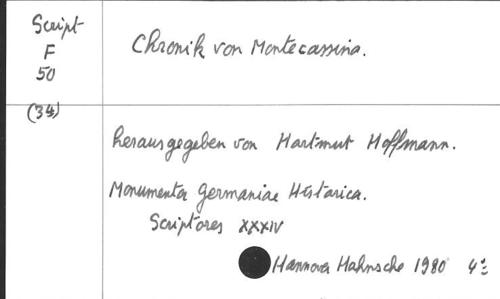 Script
F
50
(34)
Chronik von Montecassina.
herausgegeben von Hartmut Hoffmann.
Monumenta Germaniae Historica.
Scriptores XXXIV
Hannover Hahnsche 1980 4º